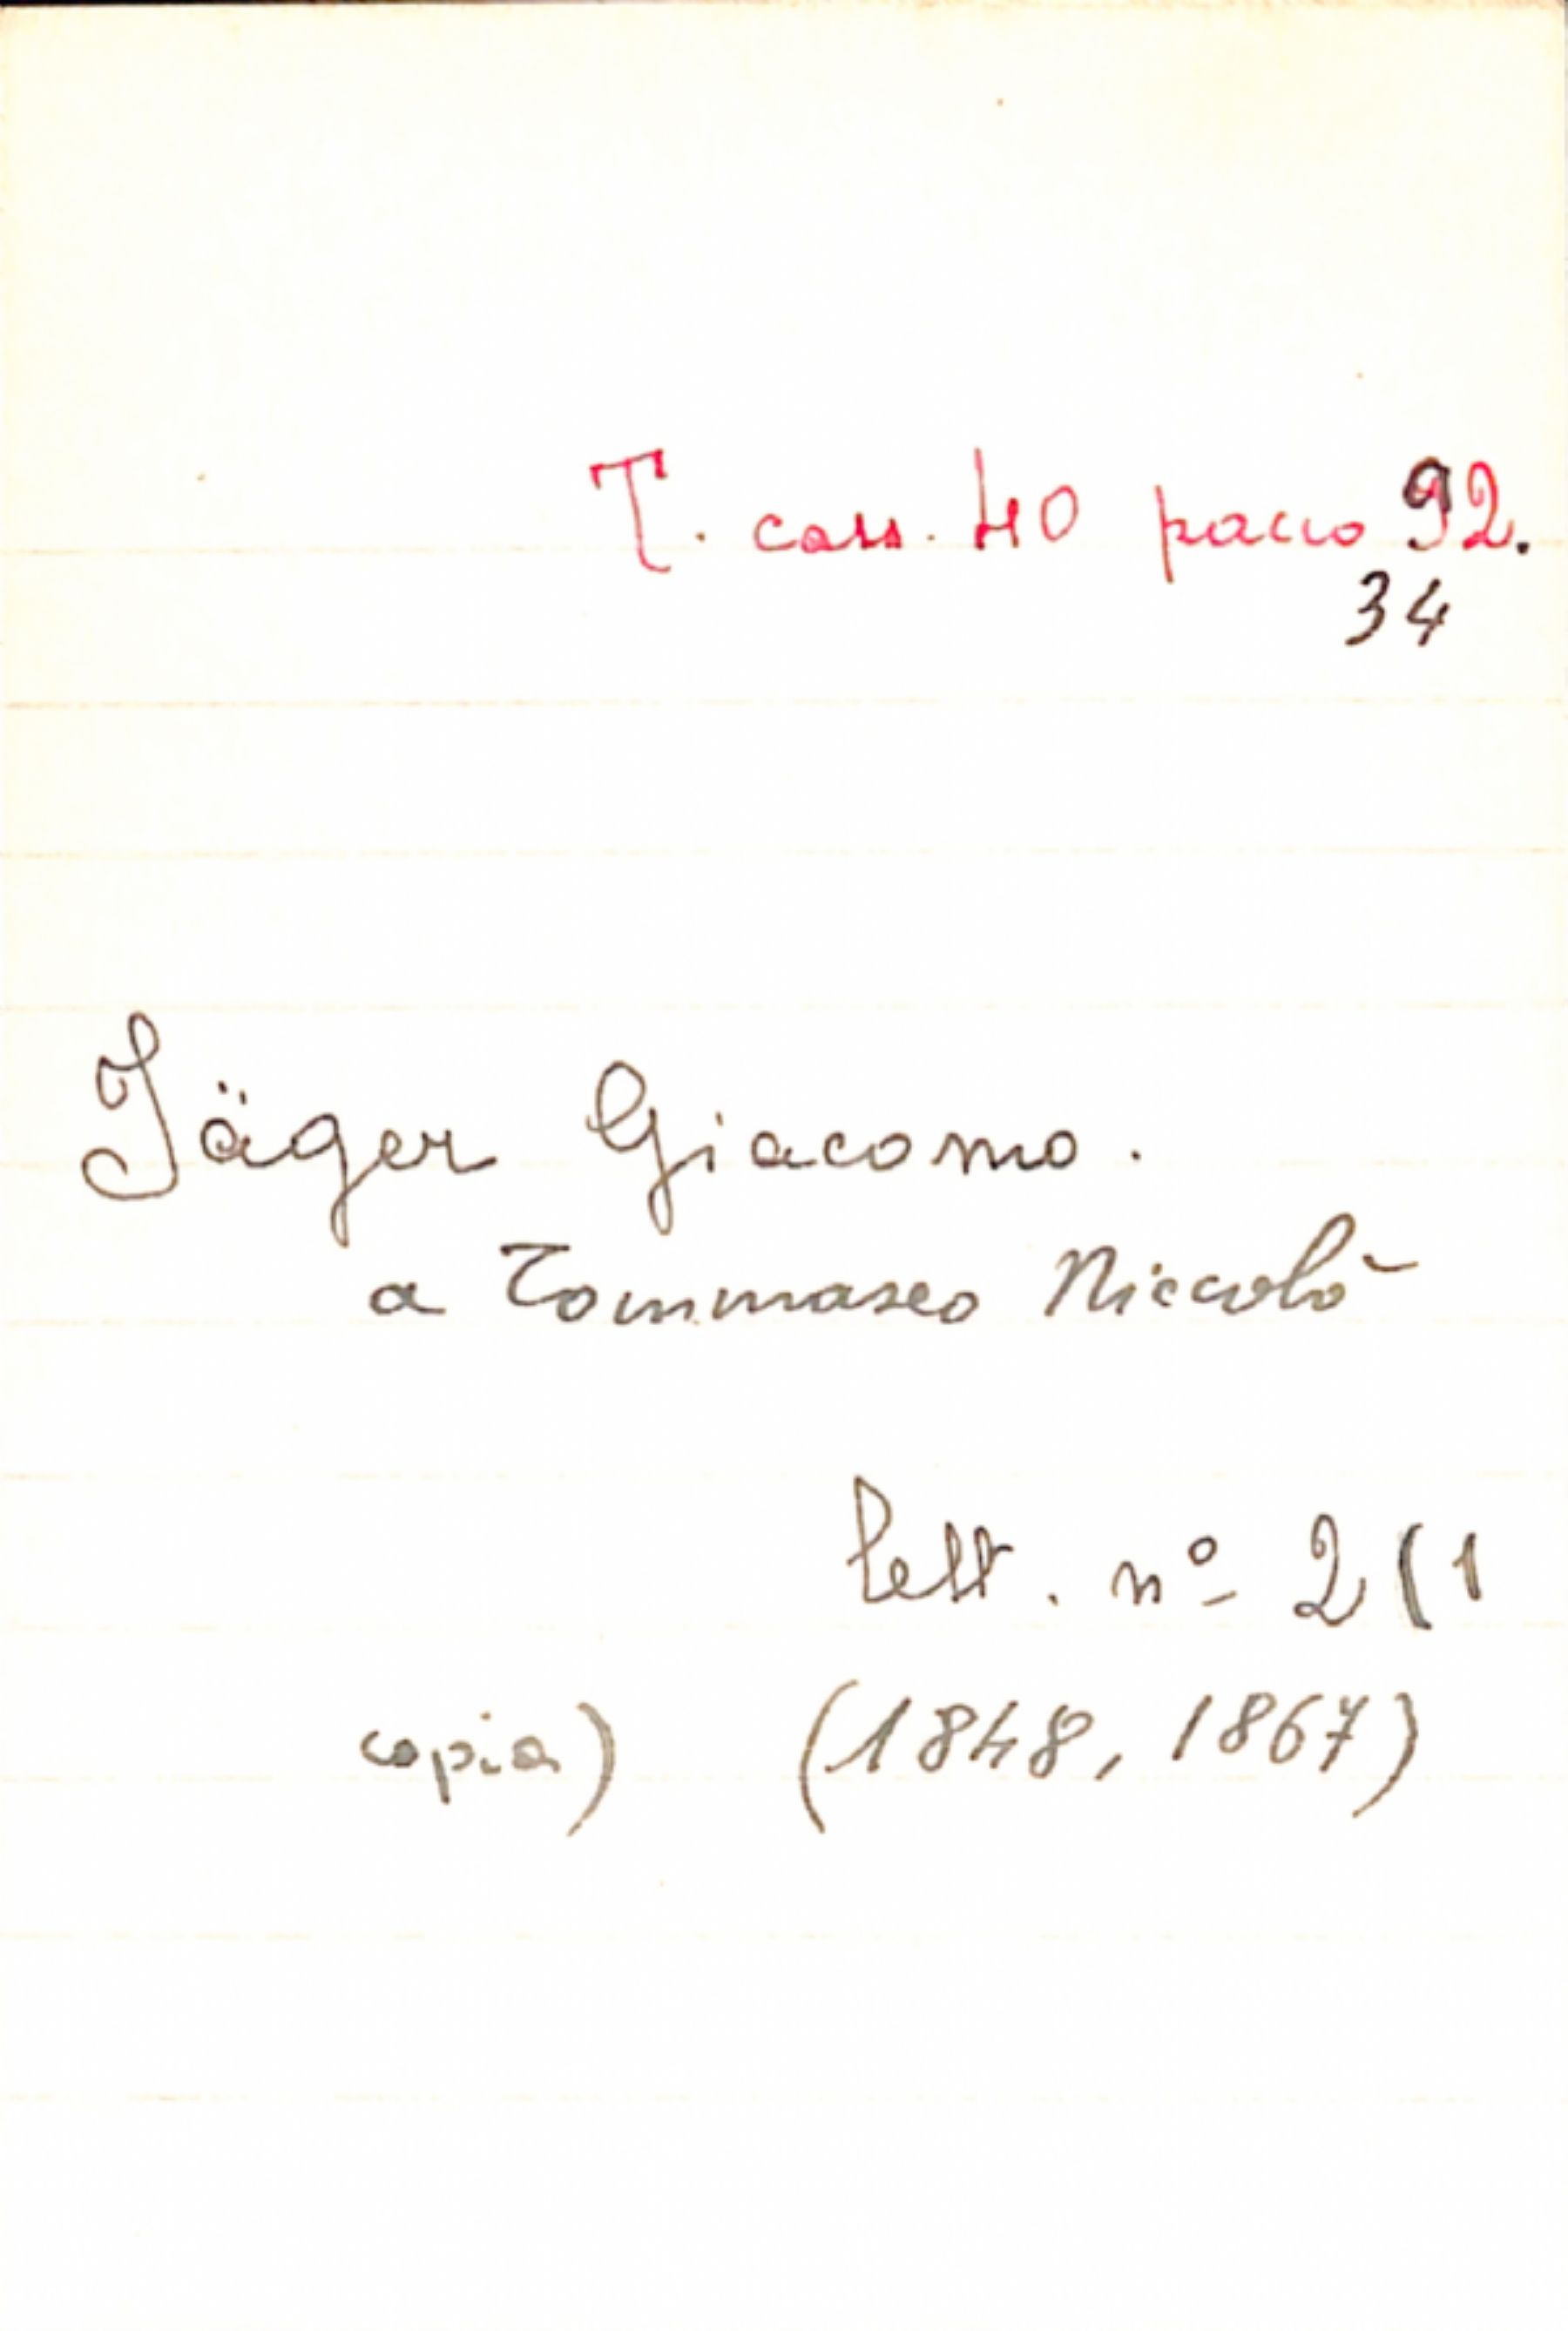 T. cass. 40 pacco 92.
34
Jäger Giacomo.
a Tommaseo Niccolò
lett. nº 2 (1
copia) (1848, 1867)